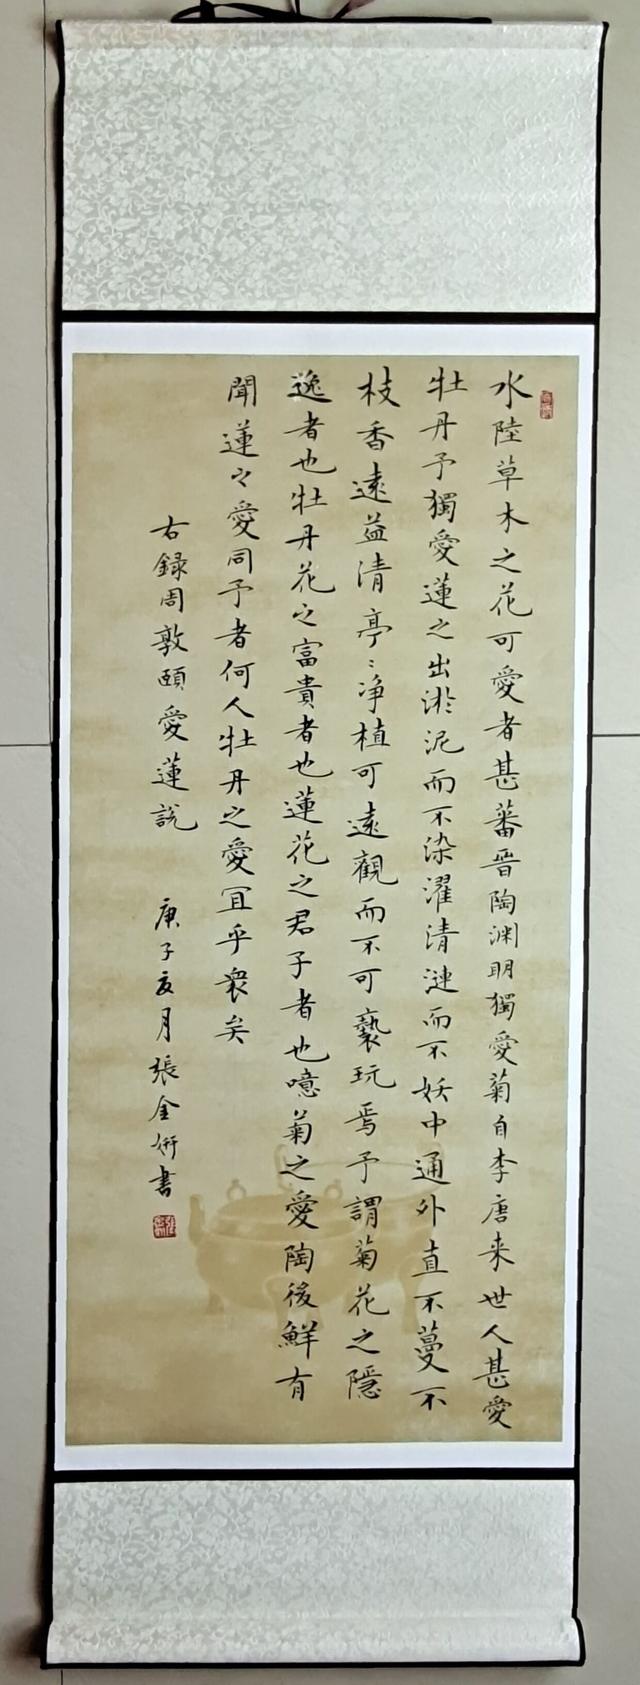 水陸草木之花可愛者甚蕃晉陶渊明獨愛菊自李唐来世人甚愛
牡丹予獨愛蓮之出淤泥而不染濯清漣而不妖中通外直不蔓不
枝香遠益清亭〻净植可遠觀而不可褻玩焉予謂菊花之隱
逸者也牡丹花之富貴者也蓮花之君子者也噫菊之愛陶後鮮有
聞蓮之愛同予者何人牡丹之愛宜乎衆矣
右録周敦頤愛蓮説
庚子亥月張金妍書